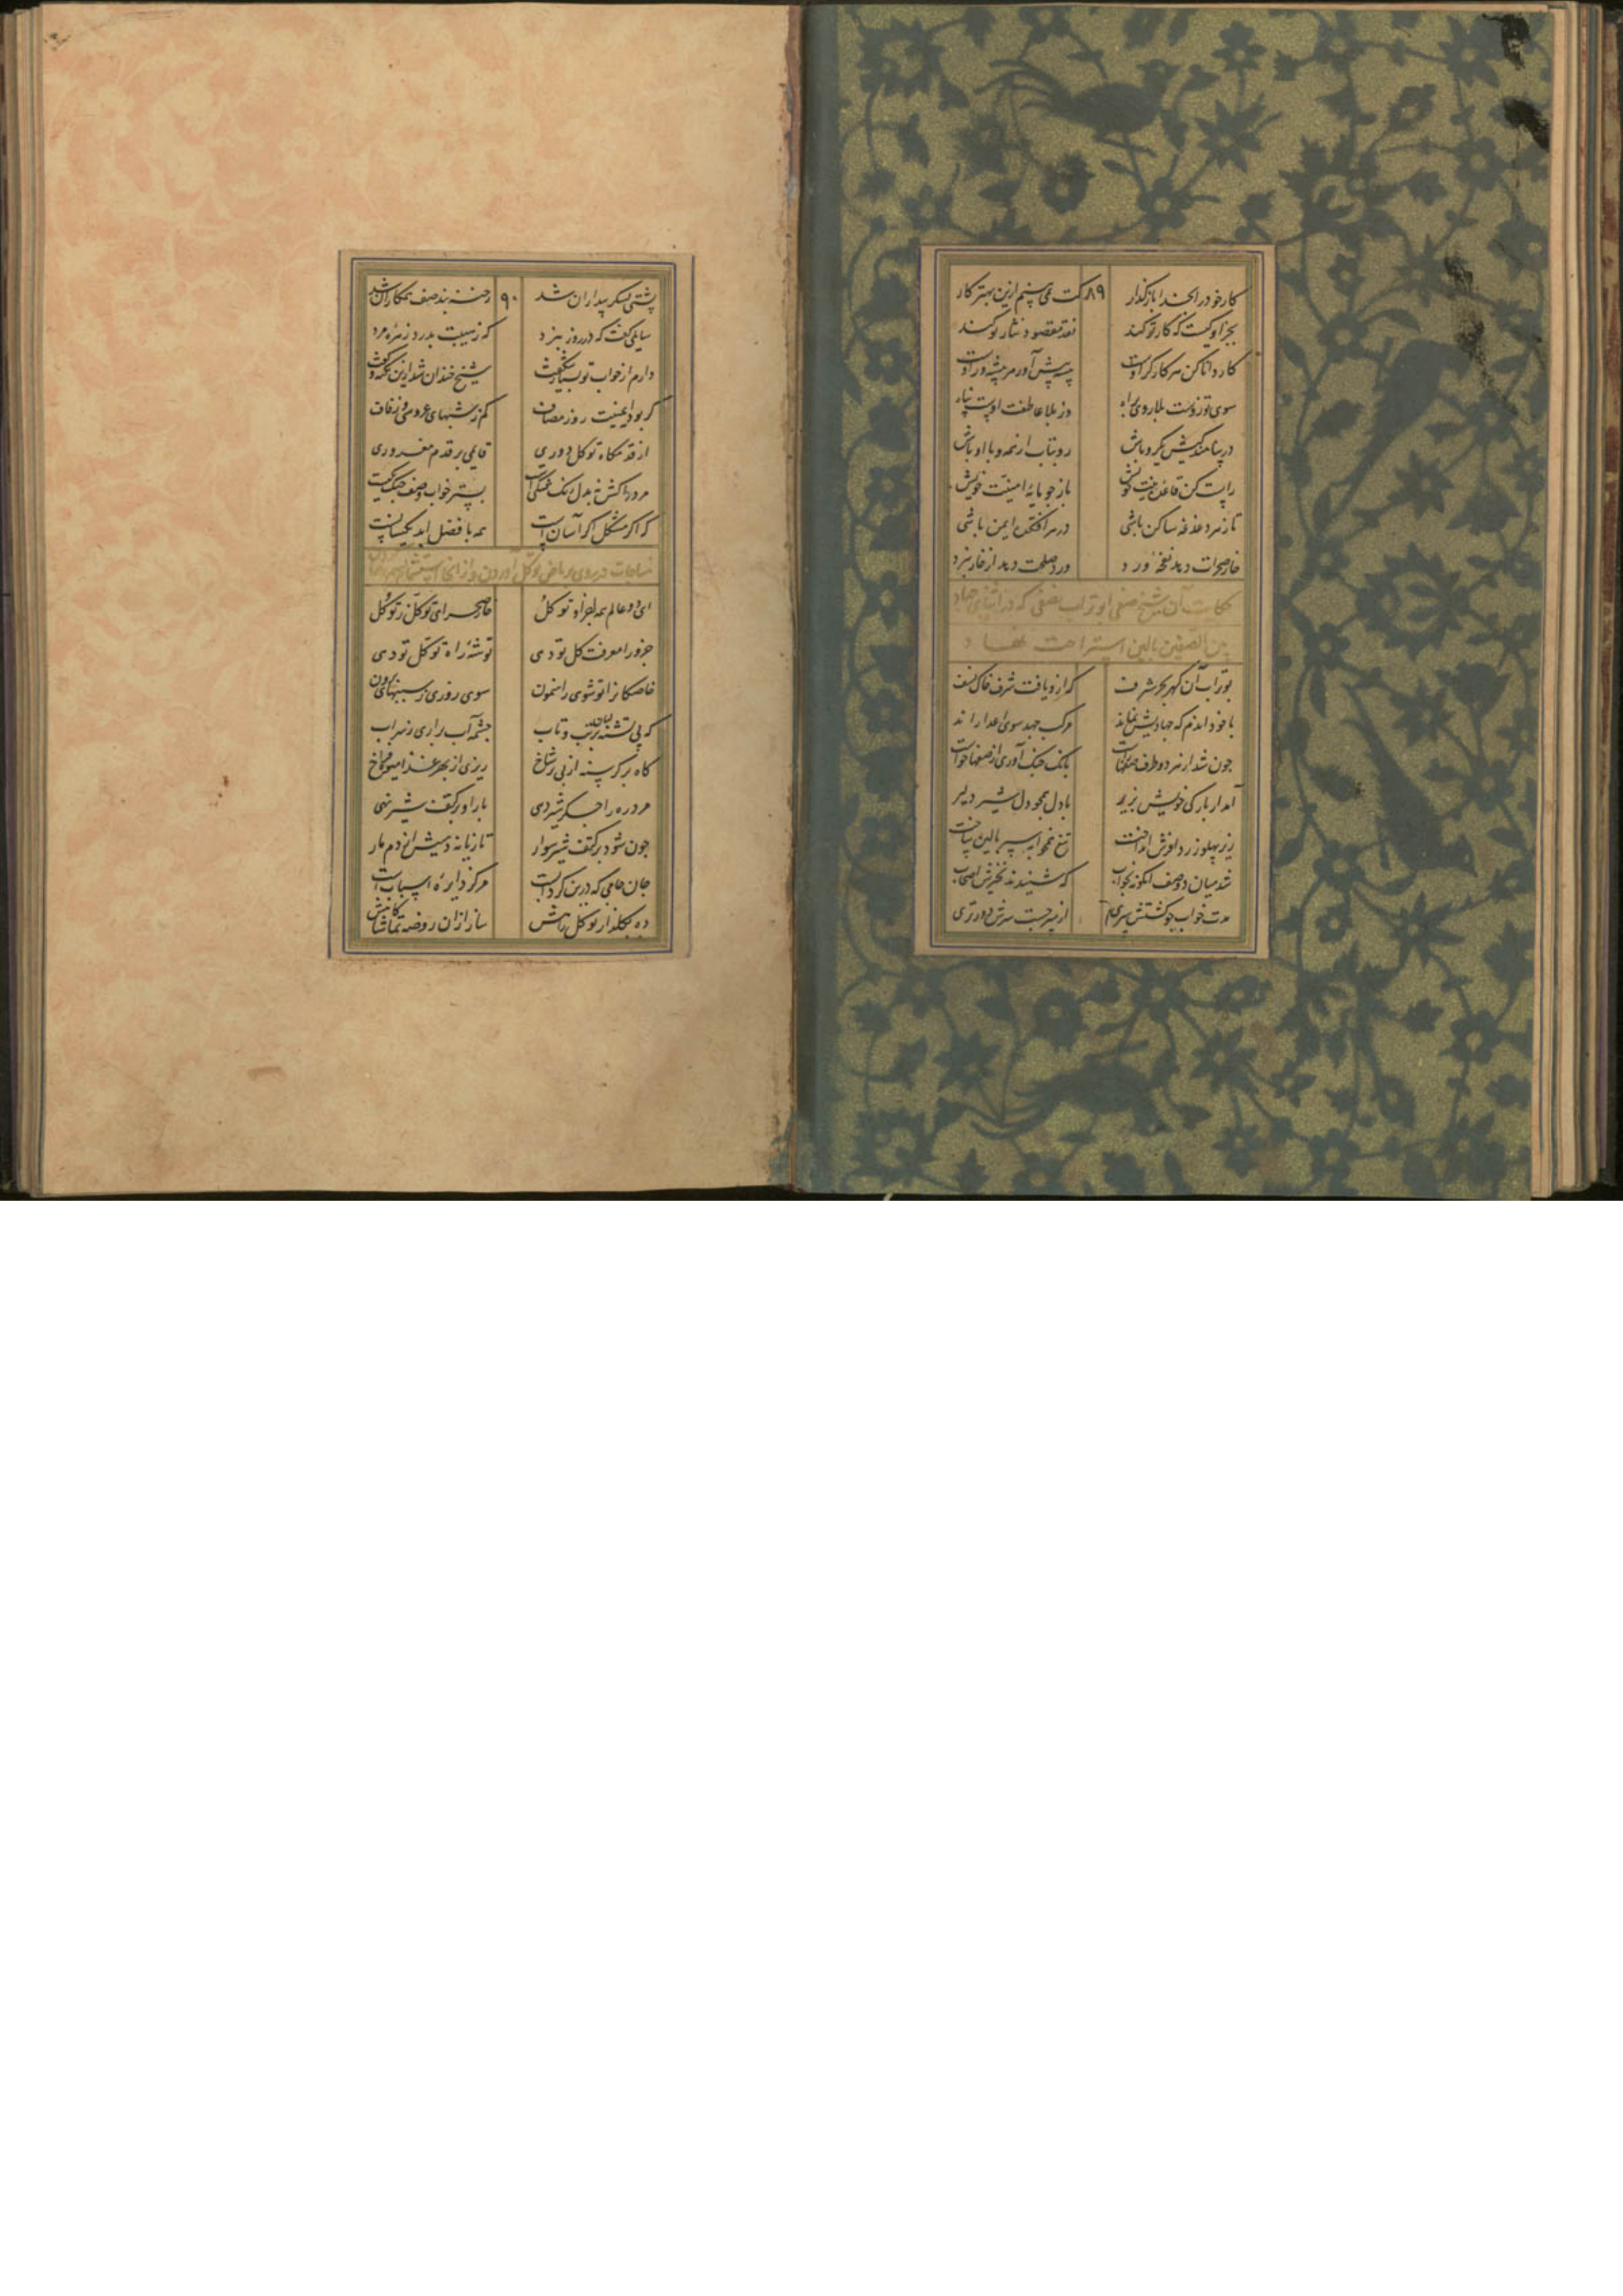 کار خود را بخدا بازگذار ۸۹ کت نمی بینم ازین بهتر کار
بجز او کیست که کار تو کند نقد مقصود نثار تو کند
کار دانا کن هر کار گر اوست پیشه پیش آور هر پیشه ور اوست
سوی تو زوست بلا روی براه وز بلا عاطفت اوست پناه
در پناهندگیش یکرو باش رو بتاب از همه و با او باش
راست کن قاعده نیت خویش باز جو مایه امنیت خویش
تا ز هر دغدغه ساکن باشی در سرافکندگی ایمن باشی
خار صحرات دهد نفحه ورد ورد صلحت دهد از خار نبرد
حکایت آن شیخ صفی ابو تراب نخشبی که در اثنای جهاد
بین الصفین بالین استراحت نهاد
بو تراب آن گهر بحر شرف که ازو یافت شرف خاک نسف
با خود آندم که جهادیش نماند مرکب جهد سوی اعدا راند
چون شد از هر دو طرف صفها راست بانک جنک آوری از صفها خاست
آمد از بارکی خویش بزیر با دل همچو دل شیر دلیر
زیر پهلو ز ردا فرش انداخت تیغ همخوابه سپر بالین ساخت
شد میان دو صف آنگونه بخواب که شنیدند نفیرش اصحاب
مدت خواب چو گشتش سپری از سر جست سرش دور تری
پشتی لشکر بیداران شد ۹۰ رخنه بند صف همکاران شد
سایلی گفت که در روز نبرد که ز هیبت بدرد زهره مرد
دارم از خواب تو بسیار شگفت شیخ خندان شد ازین نکته و گفت
گر بود ایمنیت روز مصاف کم ز شبهای عروسی و زفاف
از قدمگاه توکل دوری قایمی بر قدم مغروری
مرد را کش نه بدل رنک شکیست بستر خواب و صف جنک یکیست
کار اگر مشکل اگر آسانست همه با فضل ابد یکسانست
مناجات در روی بریاض توکل آوردن و از آنجا استشمام
ای دو عالم همه اجزا و تو کل خار صحرای توکل ز تو گل
جزو را معرفت کل تو دهی توشه راه توکل تو دهی
خاصگانرا تو شوی راهنمون سوی روزی ز سببها بیرون
که پی تشنه لب در تب و تاب چشمه آب براری ز سراب
گاه بر گرسنه از بی بر شاخ ریزی از بهر غذا میوه فراخ
مرد ره را جگر شیر دهی بار او بر کتف شیر نهی
چون شود بر کتف شیر سوار تازیانه دهیش از دم مار
جان جامی که درین گردابست مرکز دایره اسبابست
ده بگلزار توکل راهش ساز از آن روضه تماشا گاهش